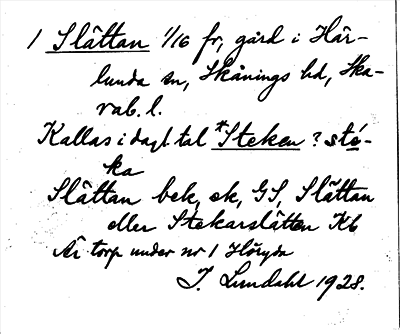 1 Slättan 1/16 fr, gård i Här-
lunda sn, Skånings hd, Ska-
rab. l.
Kallas i dagl. tal *Steken ? sté-
ka
Slättan bek, ek, GS, Slättan
eller Stekarslätten Kb
Är torp under nr 1 Höryda
J. Lundahl 1928.